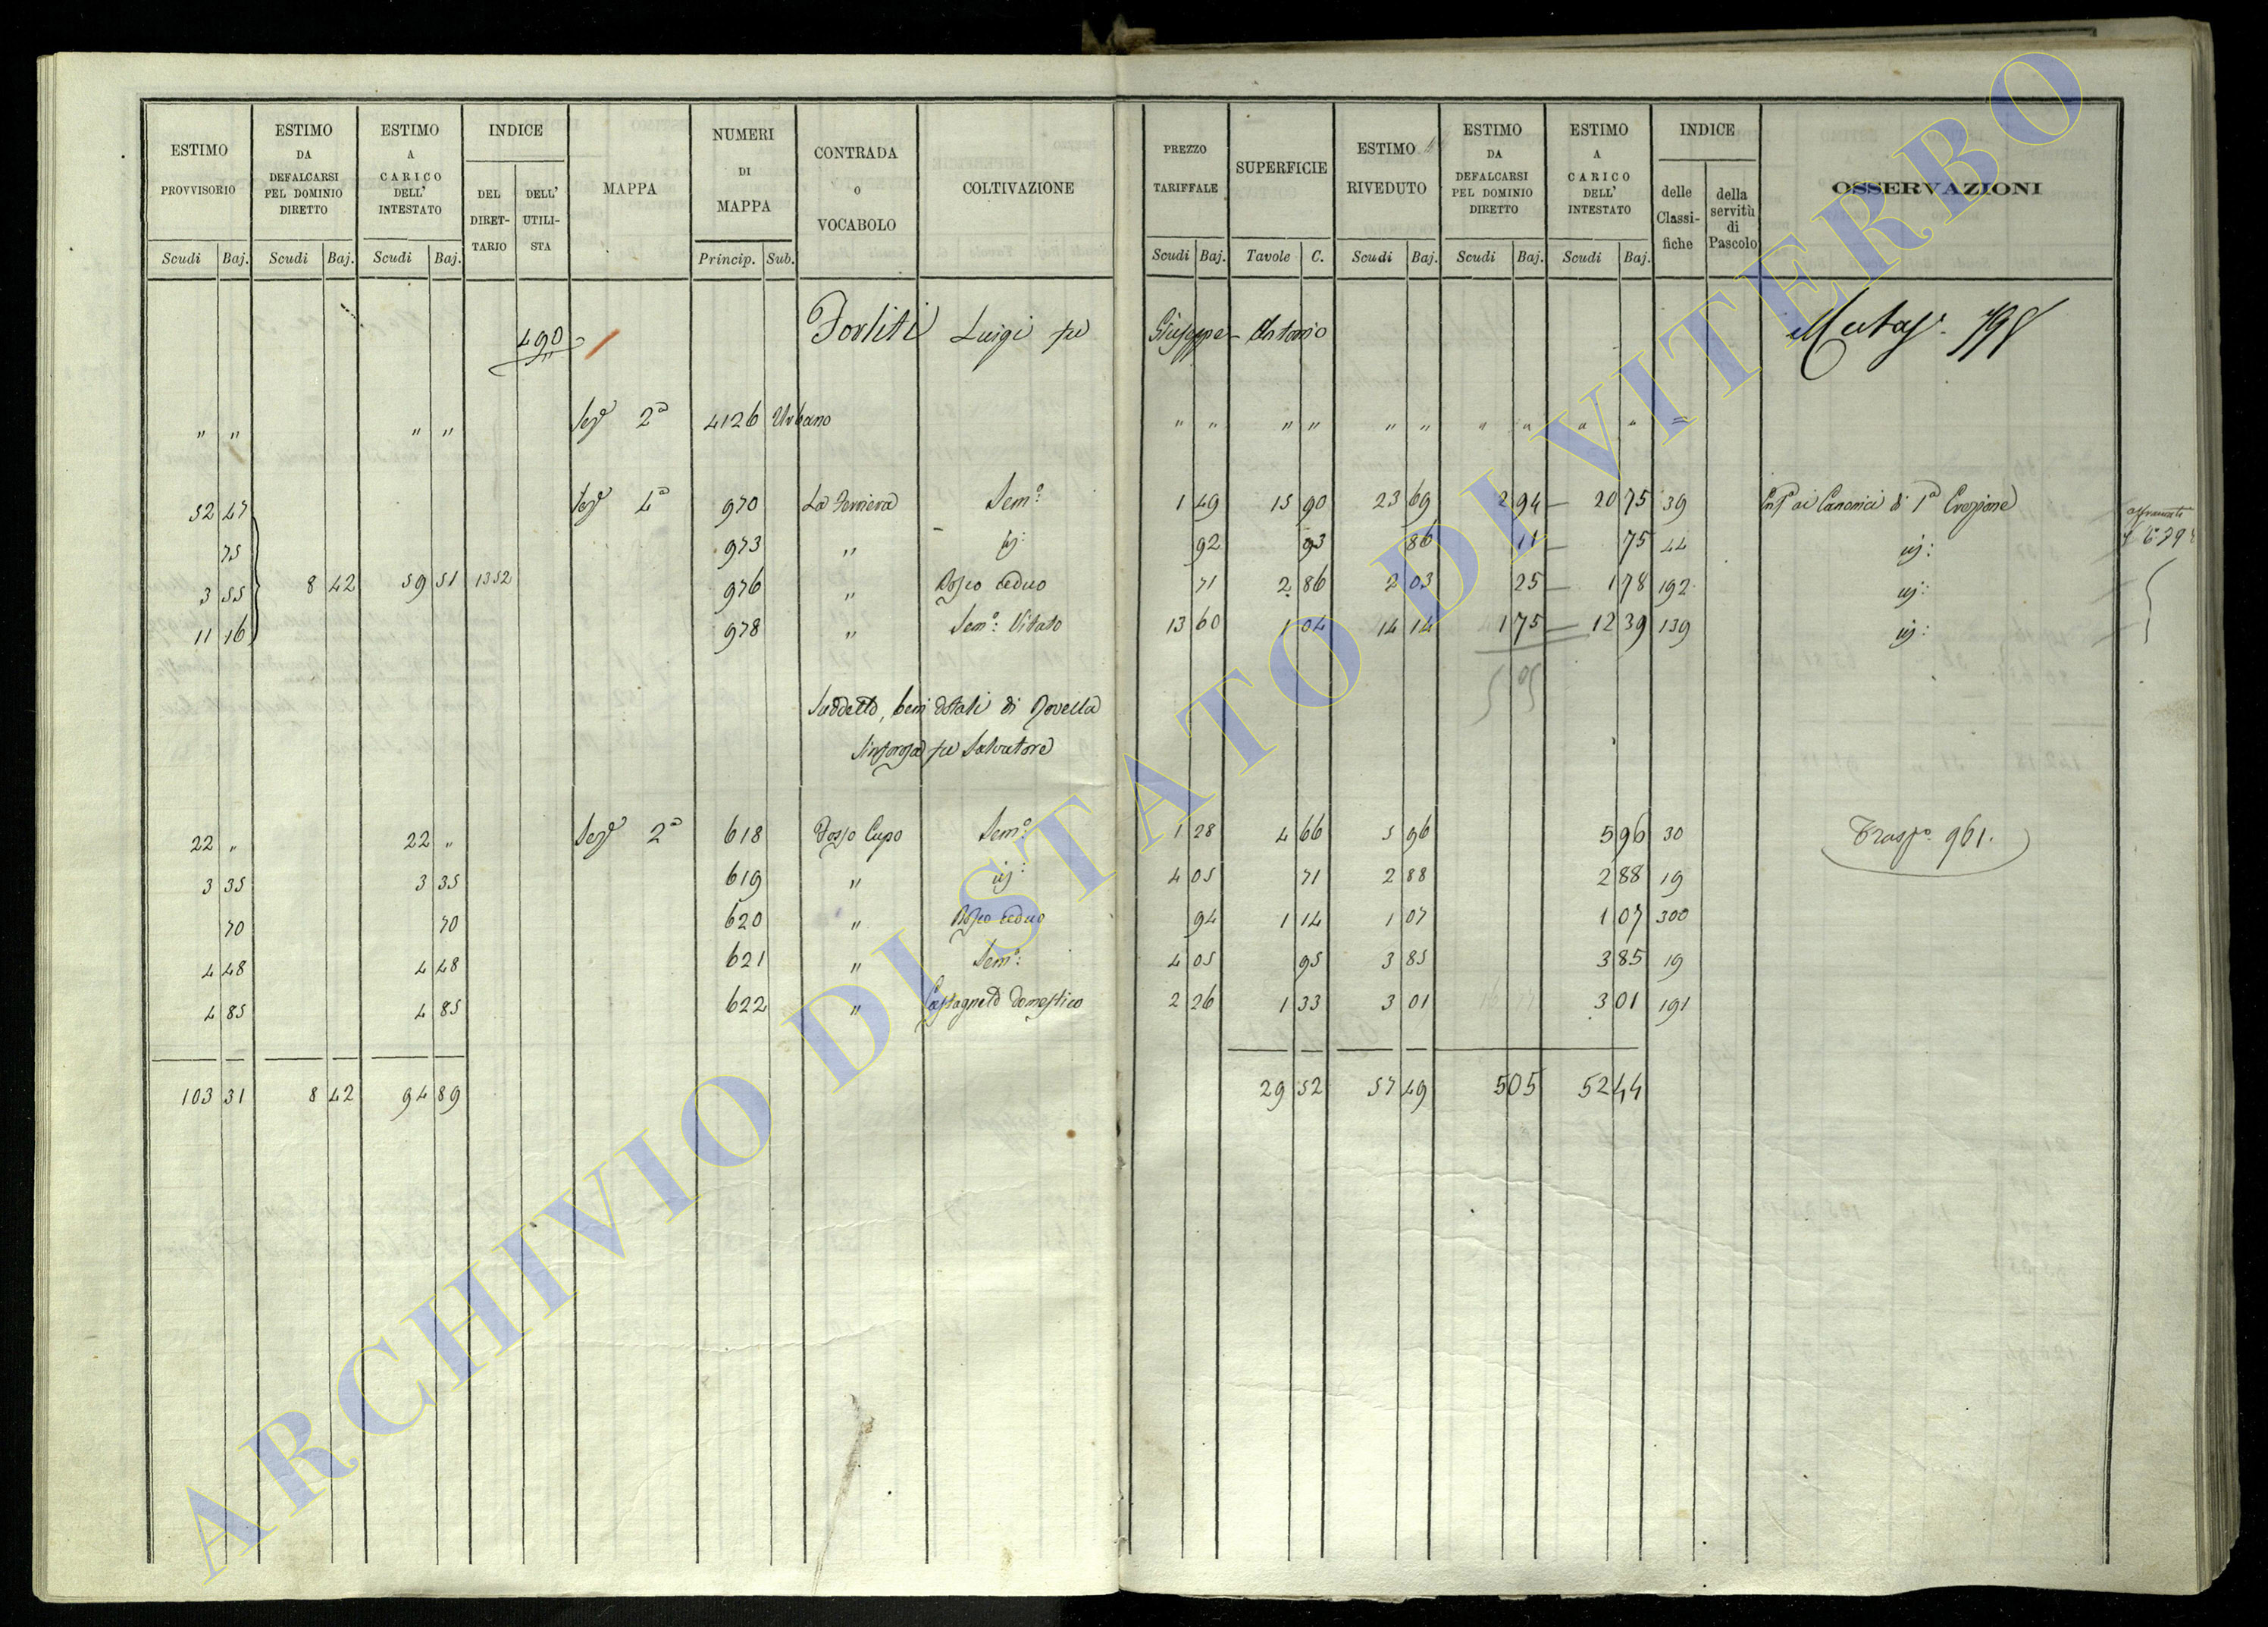 ESTIMO PROVVISORIO | ESTIMO DA DEFALCARSI PEL DOMINIO DIRETTO | ESTIMO A CARICO DELL' INTESTATO | INDICE | MAPPA | NUMERI DI MAPPA | CONTRADA O VOCABOLO | COLTIVAZIONE | PREZZO TARIFFALE | SUPERFICIE | ESTIMO RIVEDUTO | ESTIMO DA DEFALCARSI PEL DOMINIO DIRETTO | ESTIMO A CARICO DELL' INTESTATO | INDICE | OSSERVAZIONI
DEL DIRET-TARIO | DELL' UTILI-STA | delle Classi-fiche | della servitù di Pascolo
Scudi Baj. | Scudi Baj. | Scudi Baj. | Princip. Sub. | Scudi Baj. | Tavole C. | Scudi Baj. | Scudi Baj. | Scudi Baj.
490 Luigi fu Giuseppe Antonio 798
" " " " 2a 4126 Urbano " " " " " " " " " " =
52 47 970 Sem.o: 1 49 15 90 23 69 2 94 20 75 39 ai Canonici di 1a Erezione
75 973 " id: 92 93 86 11 75 44 id:
3 55 8 42 59 51 1352 976 " Bosco ceduo 71 2 86 2 03 25 1 78 192 id:
11 16 978 " Sem.o: Vitato 13 60 1 04 14 14 1 75 12 39 139 id:
5 05
Suddetto, beni dotali di
Sinforosa fu Salvatore
22 " 22 " 2a 618 Fosso Cupo Sem.o 1 28 4 66 5 96 5 96 30 Trasp.o 961.
3 35 3 35 619 " id: 4 05 71 2 88 2 88 19
70 70 620 " Bosco ceduo 94 1 14 1 07 1 07 300
4 48 4 48 621 " Sem.o: 4 05 95 3 85 3 85 19
4 85 4 85 622 " Castagneto domestico 2 26 1 33 3 01 3 01 191
103 31 8 42 94 89 29 52 57 49 5 05 52 44
ARCHIVIO DI STATO DI VITERBO